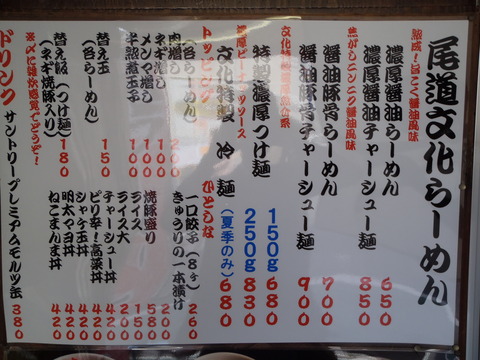 尾道文化らーめん
熟成!旨こく醤油風味
濃厚醤油らーめん 650
濃厚醤油チャーシュー麺 850
焦がしニンニク醤油風味
醤油豚骨らーめん 700
醤油豚骨チャーシュー麺 900
文化特製濃厚
特製濃厚つけ麺 150g 680
250g 830
濃厚ピーナッツソース
文化特製 冷麺 (夏季のみ) 680
トッピング
(各らーめん)
肉増し 200
ネギ増し 100
メンマ増し 100
半熟煮玉子 100
替え玉
(各らーめん) 150
替え飯(つけ麺) 180
(ネギ焼豚入り)
※〆に雑炊感覚でどうぞ!
ひとしな
一口餃子(8ヶ) 260
きゅうりの一本漬け 200
焼豚盛り 580
ライス 150
ライス大 200
チャーシュー丼 420
ピリ辛!高菜丼 420
シャケ玉丼 420
明太マヨ丼 420
ねこまんま丼 420
ドリンク サントリープレミアムモルツ缶 380